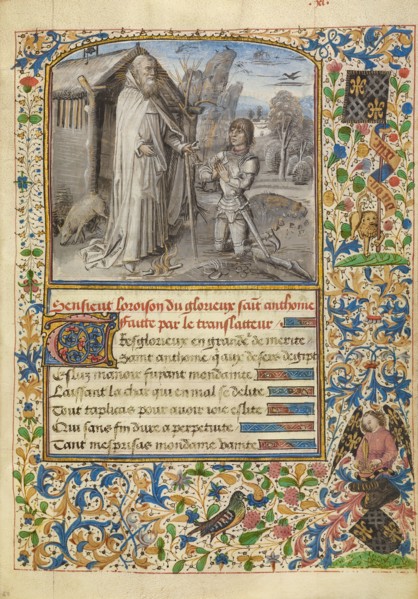 Sensieut loroison du glorieux saīt anthoine
Faitte par le translatteur
Tresglorieux en grande de merite
Saint anthoine q̄ aux desers
Esluz manoir fuyant mondainite
Laissant la char qui en mal se delite
Tout taplicas pour auoir ioie eslite
Qui sans fin dure a perpetuite
Tant mesprisas mondaine vanite